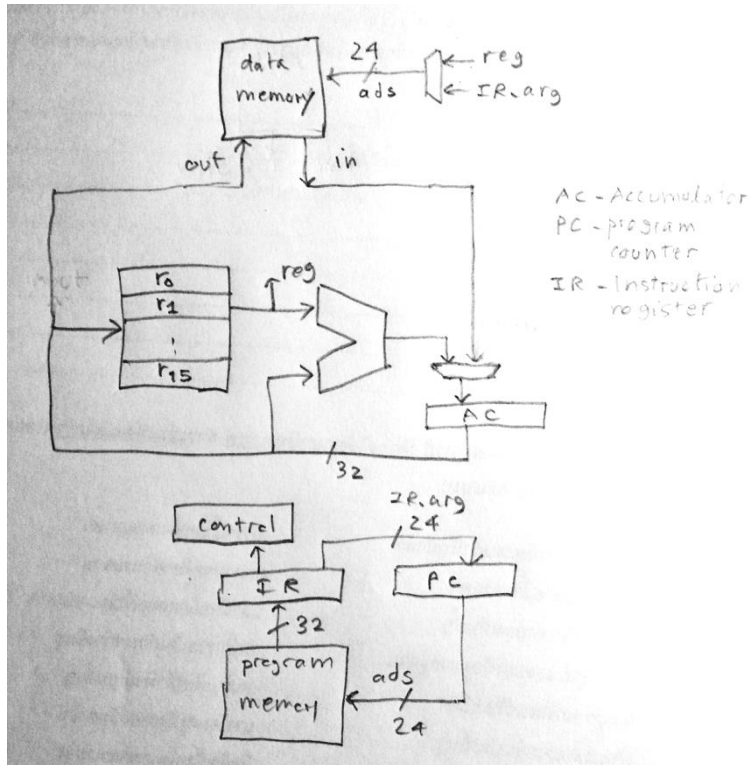 data
memory
24
ads
reg
IR.arg
out
in
AC - Accumulator
PC - program
counter
IR - Instruction
register
r0
r1
r15
reg
AC
32
IR.arg
24
control
IR
PC
32
program
memory
ads
24